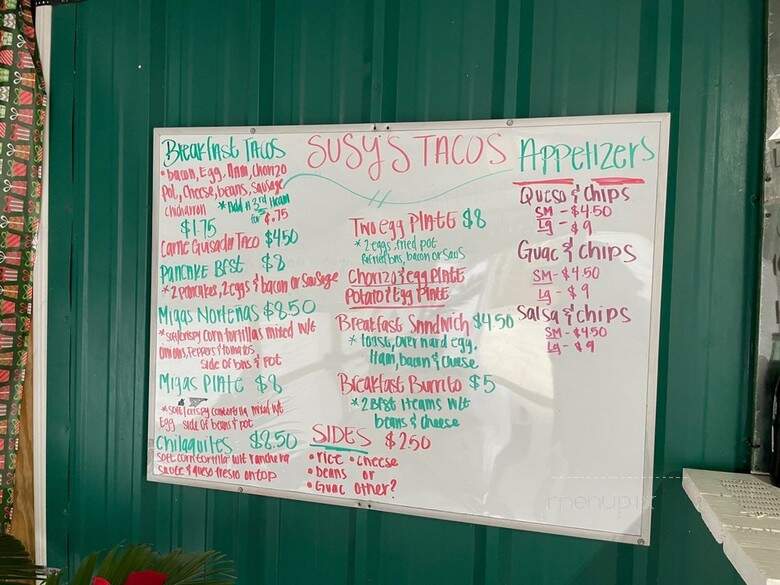 SUSY'S TACOS
Breakfast Tacos
• bacon, Egg, Ham, Chorizo
Pot, Cheese, beans, Sausage
chicharron * Add A 3rd Item
for $.75
$1.75
Carne Guisada Taco $4.50
Pancake BFST $8
* 2 pancakes, 2 eggs & bacon or Sausage
Migas Norteñas $8.50
* soft/crispy corn tortillas mixed w/t
onions, Peppers & tomatos
side of bns & pot
Migas Plate $8
* soft/crispy corntortilla mixed w/t
Egg side of beans & pot
Chilaquiles $8.50
soft corn tortilla w/t ranchera
sauce & queso fresco on top
Two egg Plate $8
* 2 eggs, fried pot
Refried bns, bacon or Saus
Chorizo & egg Plate
Potato & Egg Plate
Breakfast Sandwich $4.50
* toast, over hard egg,
Ham, bacon & cheese
Breakfast Burrito $5
* 2 BFst Items w/t
beans & cheese
SIDES $2.50
• rice • cheese
• beans or
• Guac other?
Appetizers
Queso & Chips
SM - $4.50
Lg - $9
Guac & chips
SM - $4.50
Lg - $9
Salsa & chips
SM - $4.50
Lg - $9
menupix